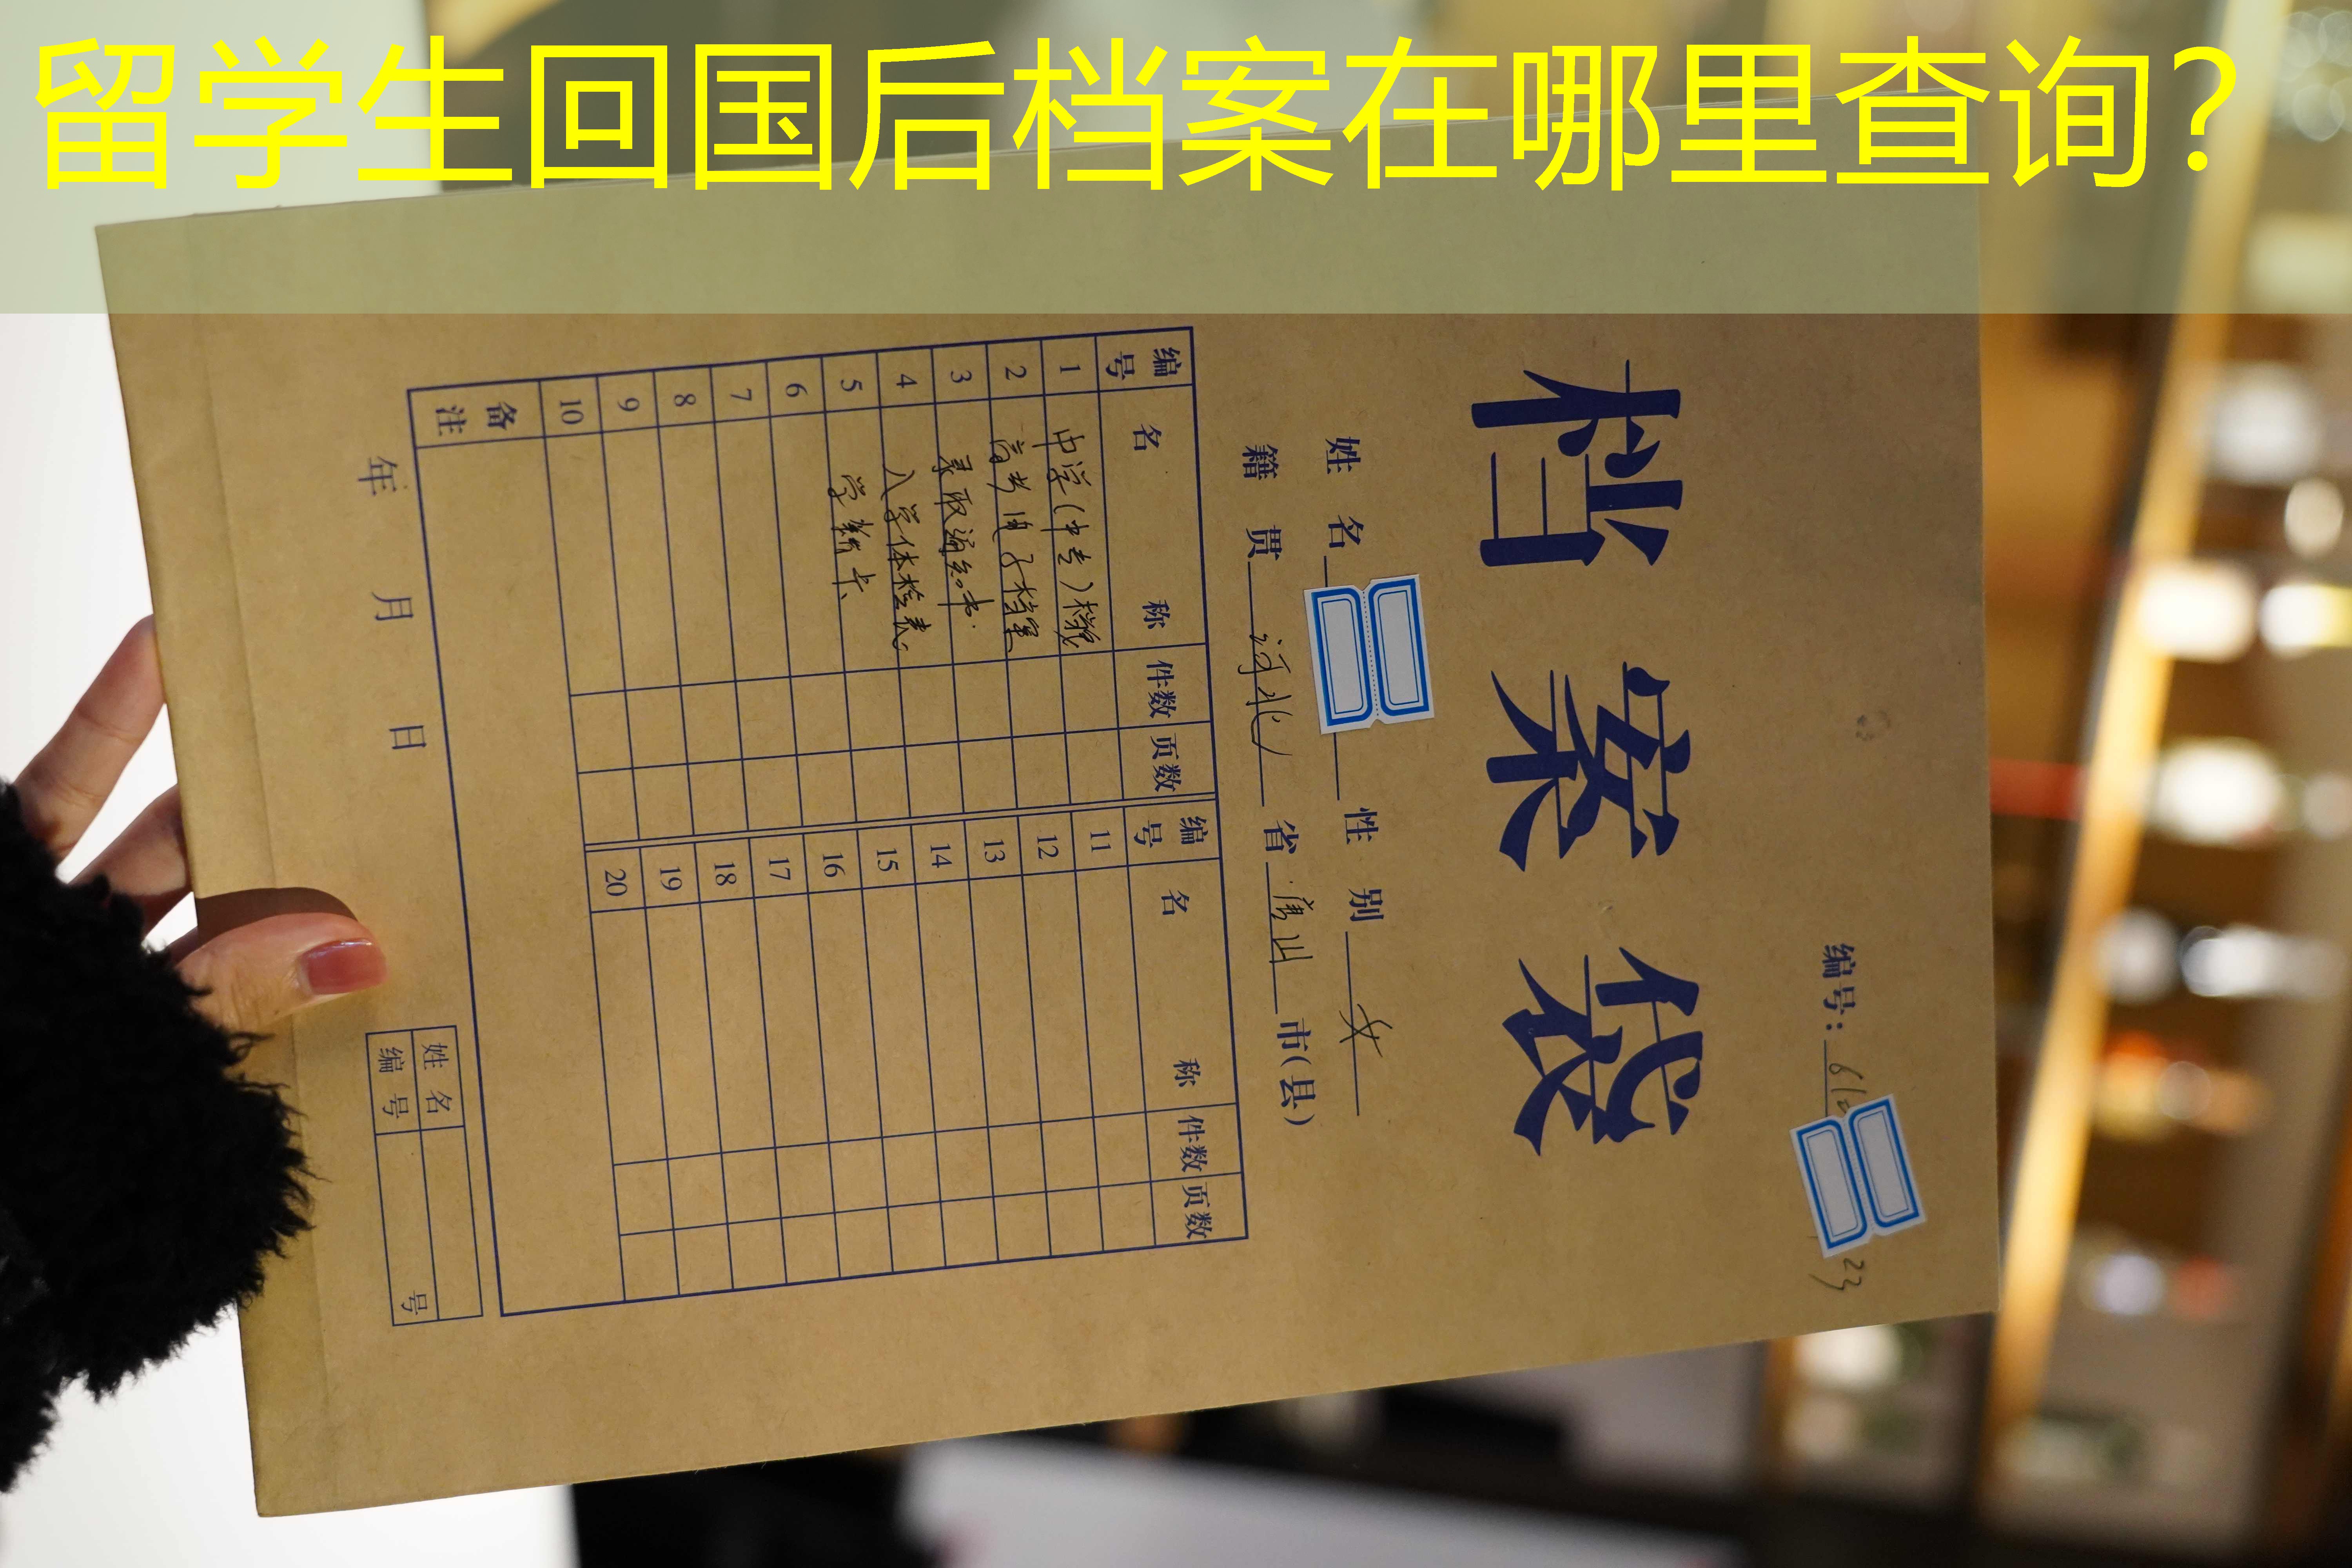 留学生回国后档案在哪里查询?
编号: 612
23
档案袋
姓名 性别 女
籍贯 河北 省 唐山 市(县)
编号 名称 件数 页数 编号 名称 件数 页数
1 中学(中专)档案 11
2 高考电子档案 12
3 录取通知书 13
4 入学体检表 14
5 学籍卡 15
6 16
7 17
8 18
9 19
10 20
备注
年 月 日
姓名
编号 号